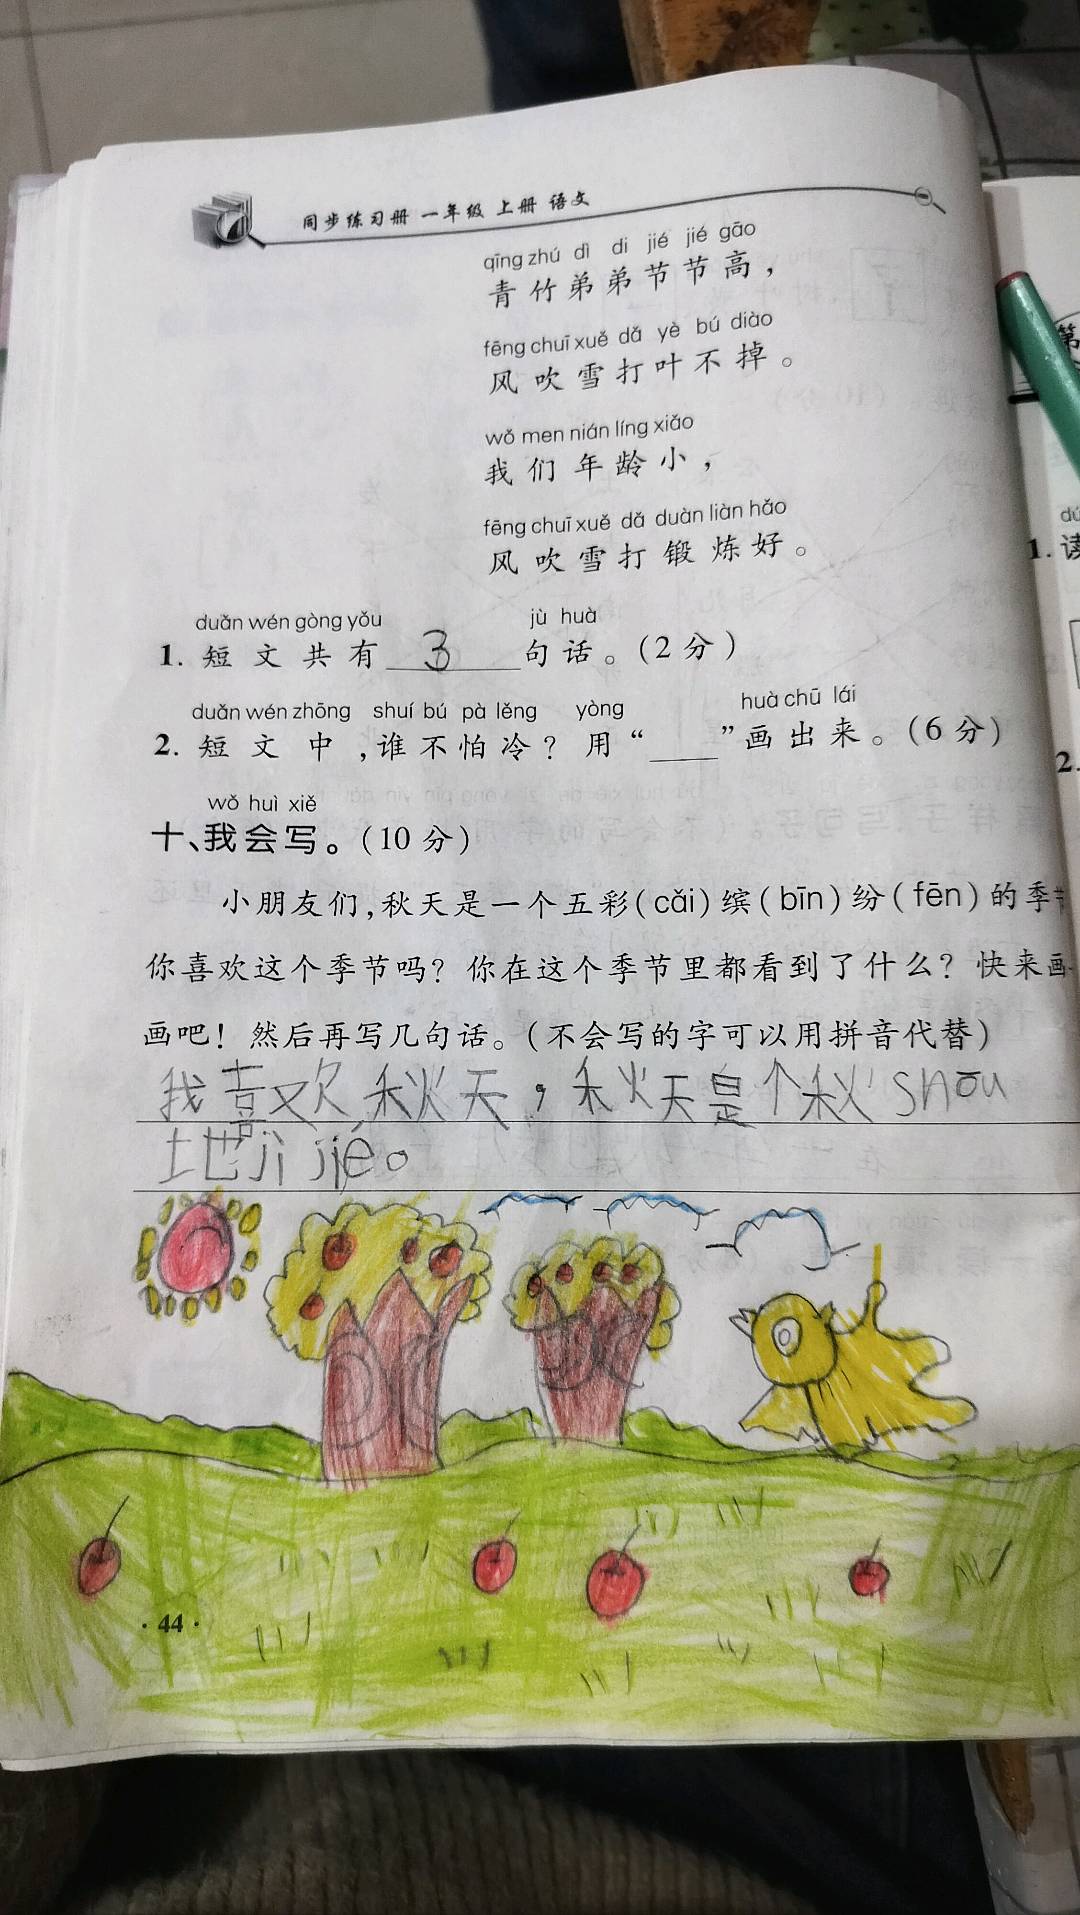 同步练习册 一年级 上册 语文
qīng zhú dì di jié jié gāo
青竹弟弟节节高，
fēng chuī xuě dǎ yè bú diào
风吹雪打叶不掉。
wǒ men nián líng xiǎo
我们年龄小，
fēng chuī xuě dǎ duàn liàn hǎo
风吹雪打锻炼好。
duǎn wén gòng yǒu jù huà
1. 短文共有 3 句话。(2分)
duǎn wén zhōng shuí bú pà lěng yòng huà chū lái
2. 短文中,谁不怕冷? 用“___”画出来。(6分)
wǒ huì xiě
十、我会写。(10分)
小朋友们,秋天是一个五彩(cǎi)缤(bīn)纷(fēn)的季
你喜欢这个季节吗? 你在这个季节里都看到了什么? 快来画
画吧! 然后再写几句话。(不会写的字可以用拼音代替)
我喜欢秋天，秋天是个秋shōu
地jì jié。
·44·
第
dú
1. 读
2.